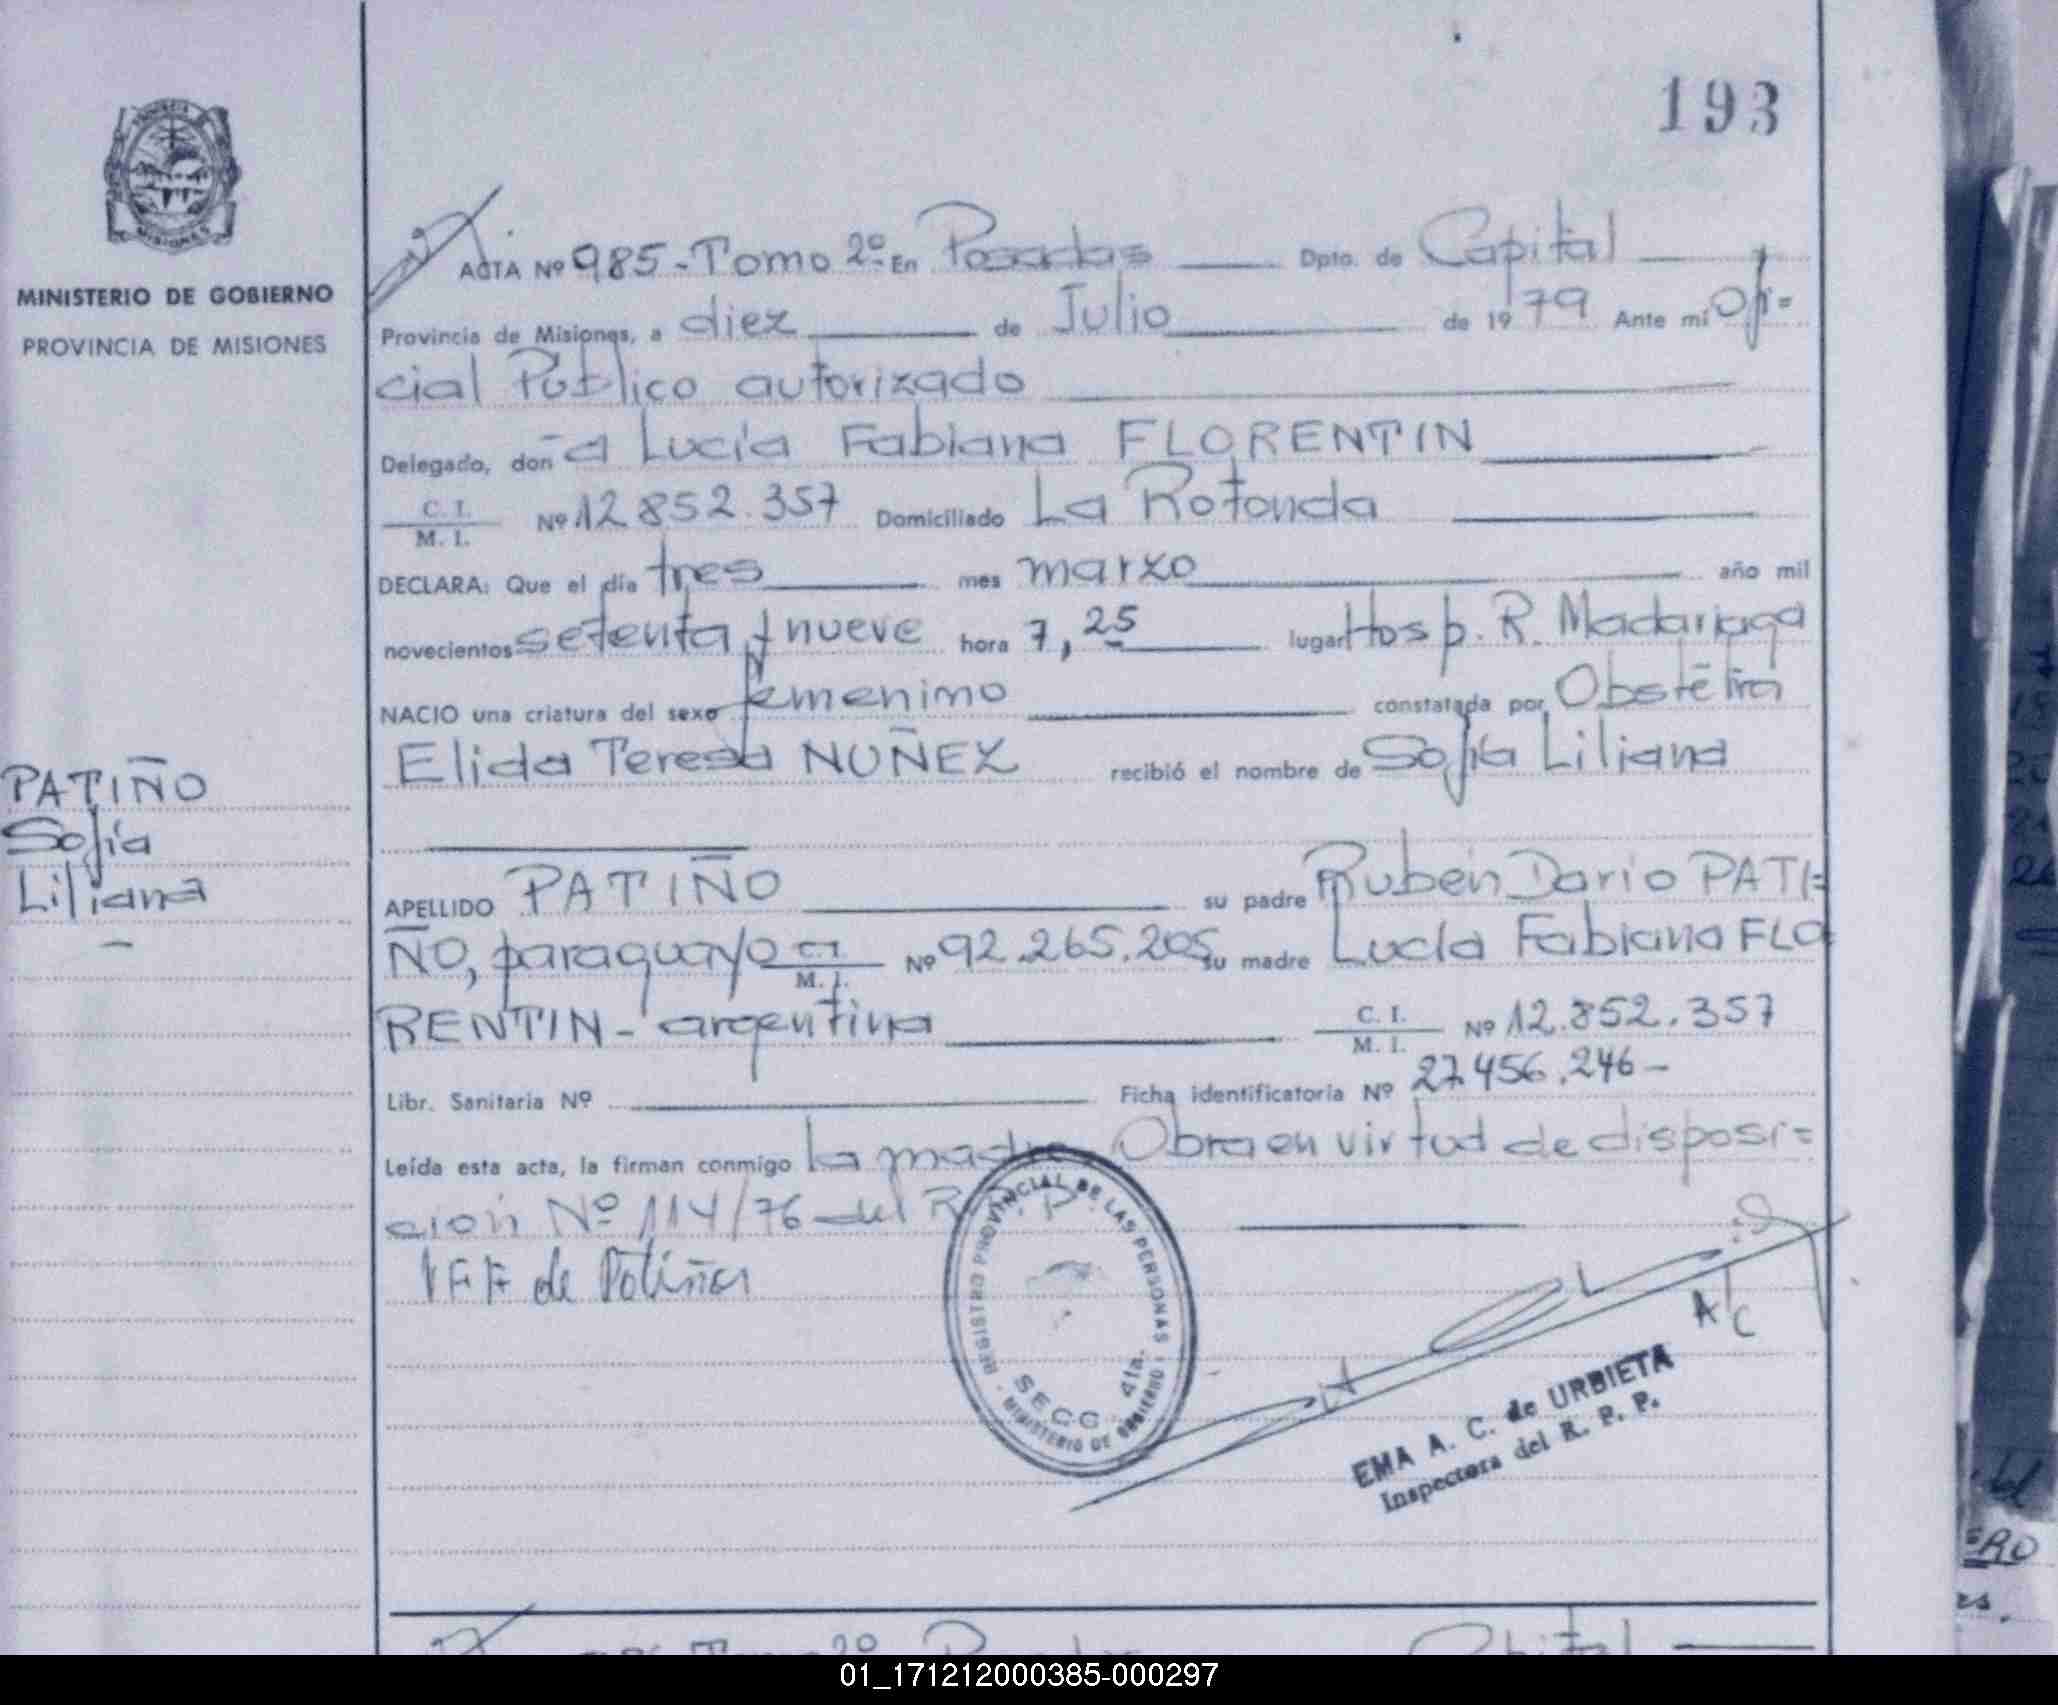 193
PROVINCIA
MISIONES
MINISTERIO DE GOBIERNO
PROVINCIA DE MISIONES
PATIÑO
Sofía
Liliana
ACTA Nº 985 - Tomo 2º En Posadas Dpto. de Capital
Provincia de Misiones, a diez de Julio de 1979 Ante mi Ofi=
cial Publico autorizado
Delegado, don a Lucía Fabiana FLORENTIN
C. I.
M. I.
Nº 12 852.357 Domiciliado La Rotonda
DECLARA: Que el día tres mes marzo año mil
novecientos setenta y nueve hora 7,25 lugar Hosp. R. Madariaga
NACIO una criatura del sexo femenino constatada por Obstétra
Elida Teresa NUÑEZ recibió el nombre de Sofía Liliana
APELLIDO PATIÑO su padre Rubén Dario PATI=
ÑO, paraguayo M. I. Nº 92.265.205 su madre Lucía Fabiana FLO
RENTIN - argentina C. I. M. I. Nº 12.852.357
Libr. Sanitaria Nº Ficha identificatoria Nº 27.456.246-
Leída esta acta, la firman conmigo la madre, Obra en virtud de disposi=
ción Nº 114/76 del R. P. P.
de Patiño
REGISTRO PROVINCIAL DE LAS PERSONAS
SECC. 4ta.
MINISTERIO DE GOBIERNO
A/C
EMA A. C. de URBIETA
Inspectora del R. P. P.
01_171212000385-000297